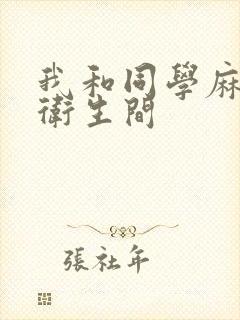 我和同學麻
衛生間
張社年